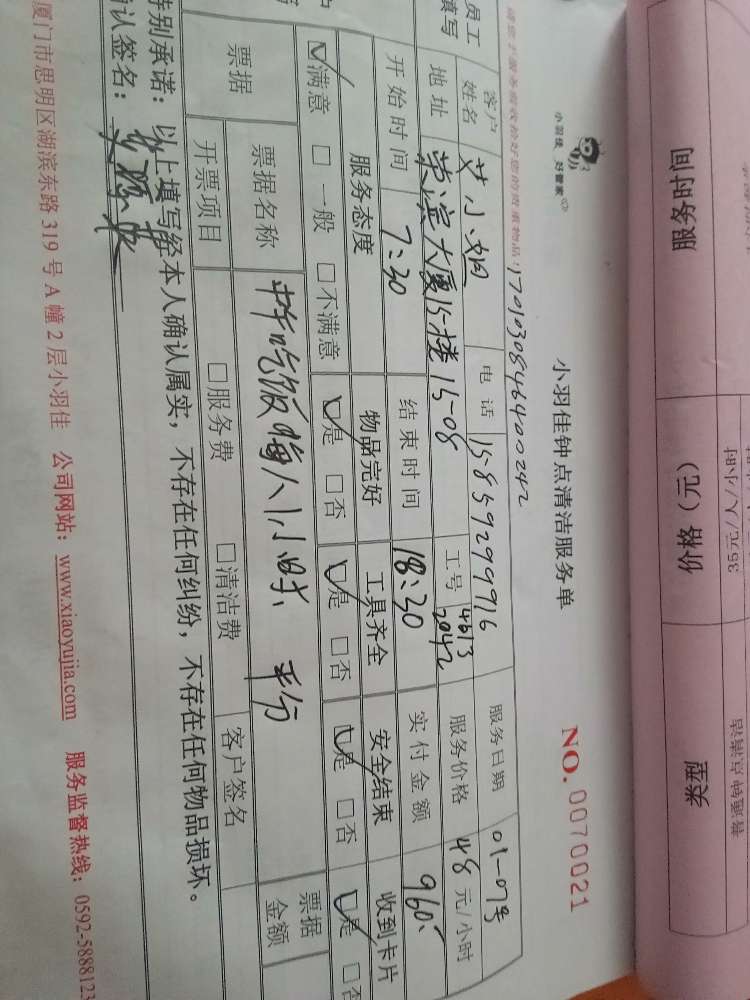 小羽佳 好管家
小羽佳钟点清洁服务单
NO. 0070021
170103084646400242
员工
填写
客户
姓名
艾小姐
电话
15859299916
服务日期
01-07号
地址
荣滨大厦15楼15-08
工号
4613
2042
服务价格
48元/小时
开始时间
7:30
结束时间
18:30
实付金额
960.
服务态度
物品完好
工具齐全
安全结束
收到卡片
满意 □一般 □不满意
是 □否
是 □否
是 □否
是 □否
票据
票据名称
吃饭 每人1小时, 平分
票据
金额
开票项目
□服务费
□清洁费
客户签名
特别承诺：以上填写经本人确认属实，不存在任何纠纷，不存在任何物品损坏。
确认签名：
厦门市思明区湖滨东路319号A幢2层小羽佳 公司网站：www.xiaoyujia.com 服务监督热线：0592-5888123
服务时间
价格（元）
类型
35元/人/小时
普通钟点清洁